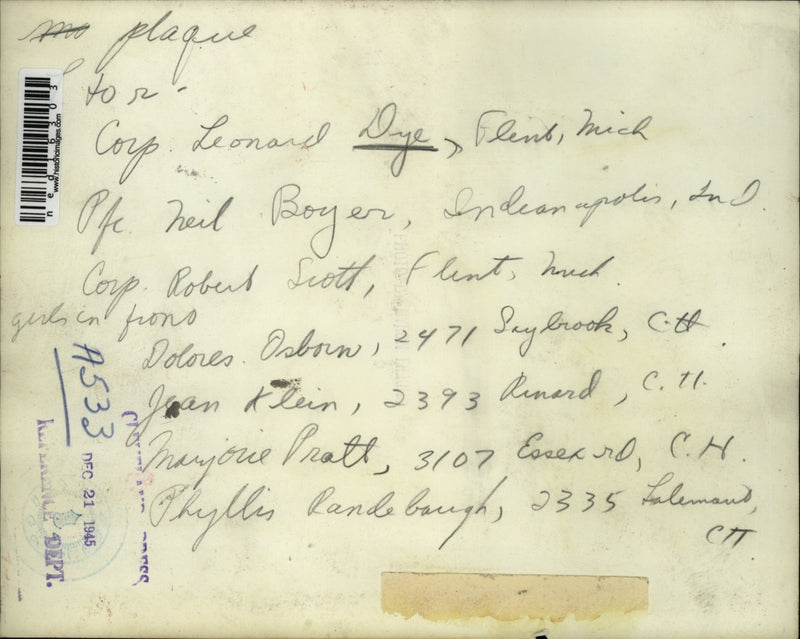 mo plaque
l to r -
Corp. Leonard Dye, Flint, Mich
Pfc. Neil Boyer, Indianapolis, Ind.
Corp. Robert Scott, Flint, Mich.
girls in front
Dolores Osborn, 2471 Saybrook, C.H.
Jean Klein, 2393 , C.H.
Marjorie Pratt, 3107 Essex rd, C.H.
Phyllis Randebaugh, 2335 , 
CH
A533
DEC 21 1945
REFERENCE DEPT.
PRESS
ned16303
www.historicimages.com